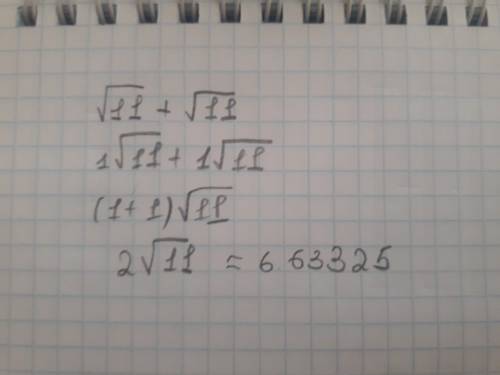 √11 + √11
1√11 + 1√11
(1+1)√11
2√11 ≈ 6.63325